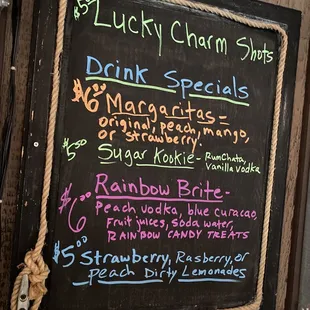 $5⁰⁰ Lucky Charm Shots
Drink Specials
$6⁰⁰ Margaritas -
original, peach, mango,
or strawberry.
$5⁰⁰ Sugar Kookie - RumChata,
vanilla vodka
Rainbow Brite -
$6⁰⁰ Peach vodka, blue curacao,
fruit juices, soda water,
RAINBOW CANDY TREATS
$5⁰⁰ Strawberry, Rasberry, or
peach Dirty Lemonades